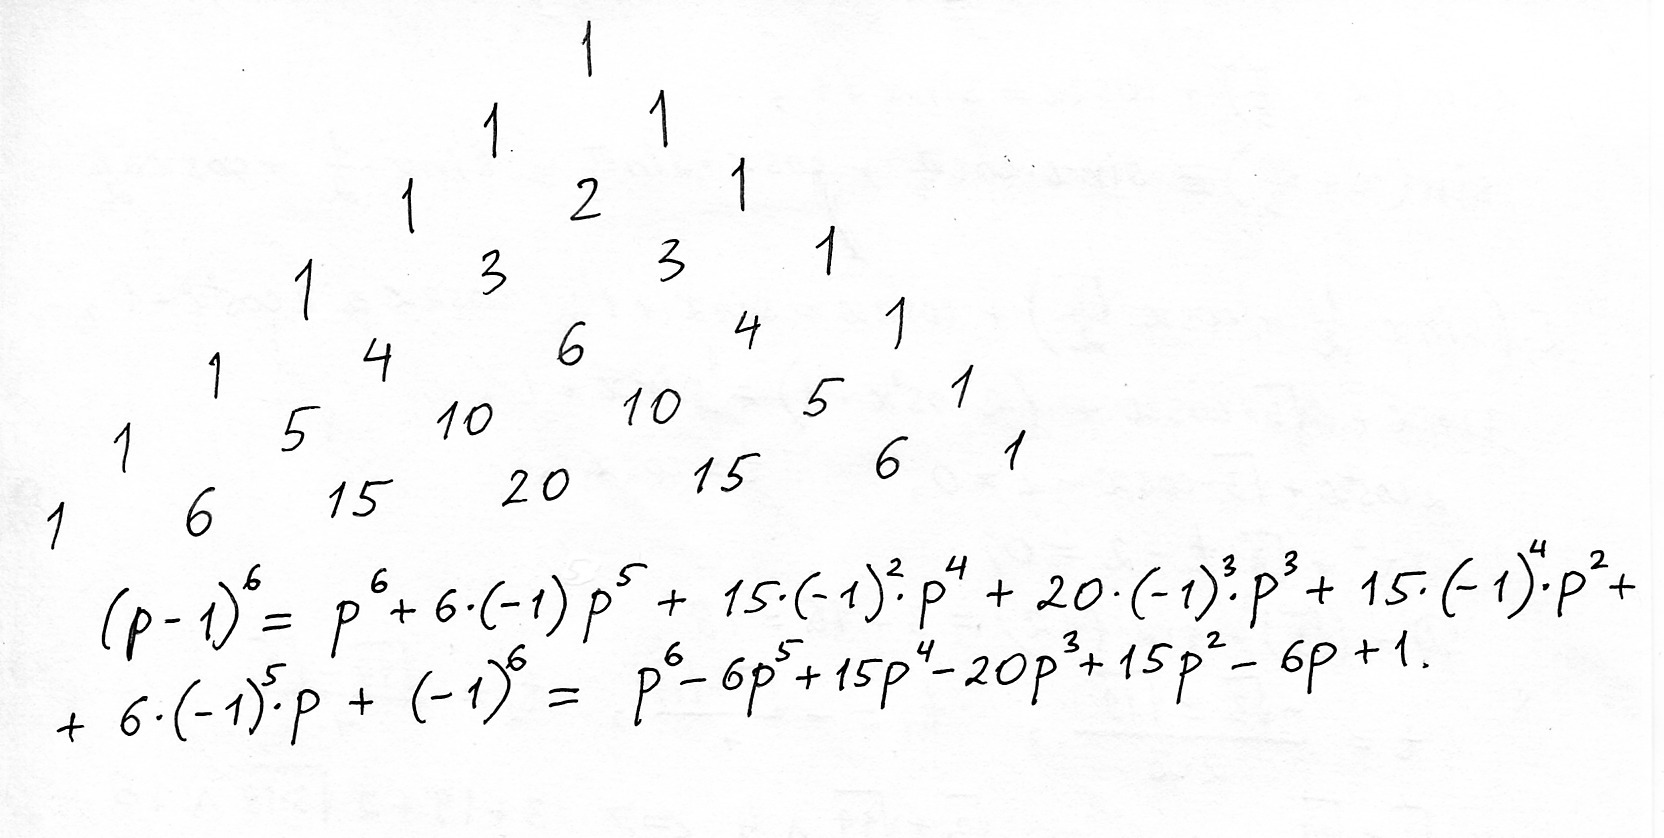 1
1 1
1 2 1
1 3 3 1
1 4 6 4 1
1 5 10 10 5 1
1 6 15 20 15 6 1
(p-1)⁶ = p⁶ + 6·(-1)p⁵ + 15·(-1)²·p⁴ + 20·(-1)³·p³ + 15·(-1)⁴·p² +
+ 6·(-1)⁵·p + (-1)⁶ = p⁶ - 6p⁵ + 15p⁴ - 20p³ + 15p² - 6p + 1.